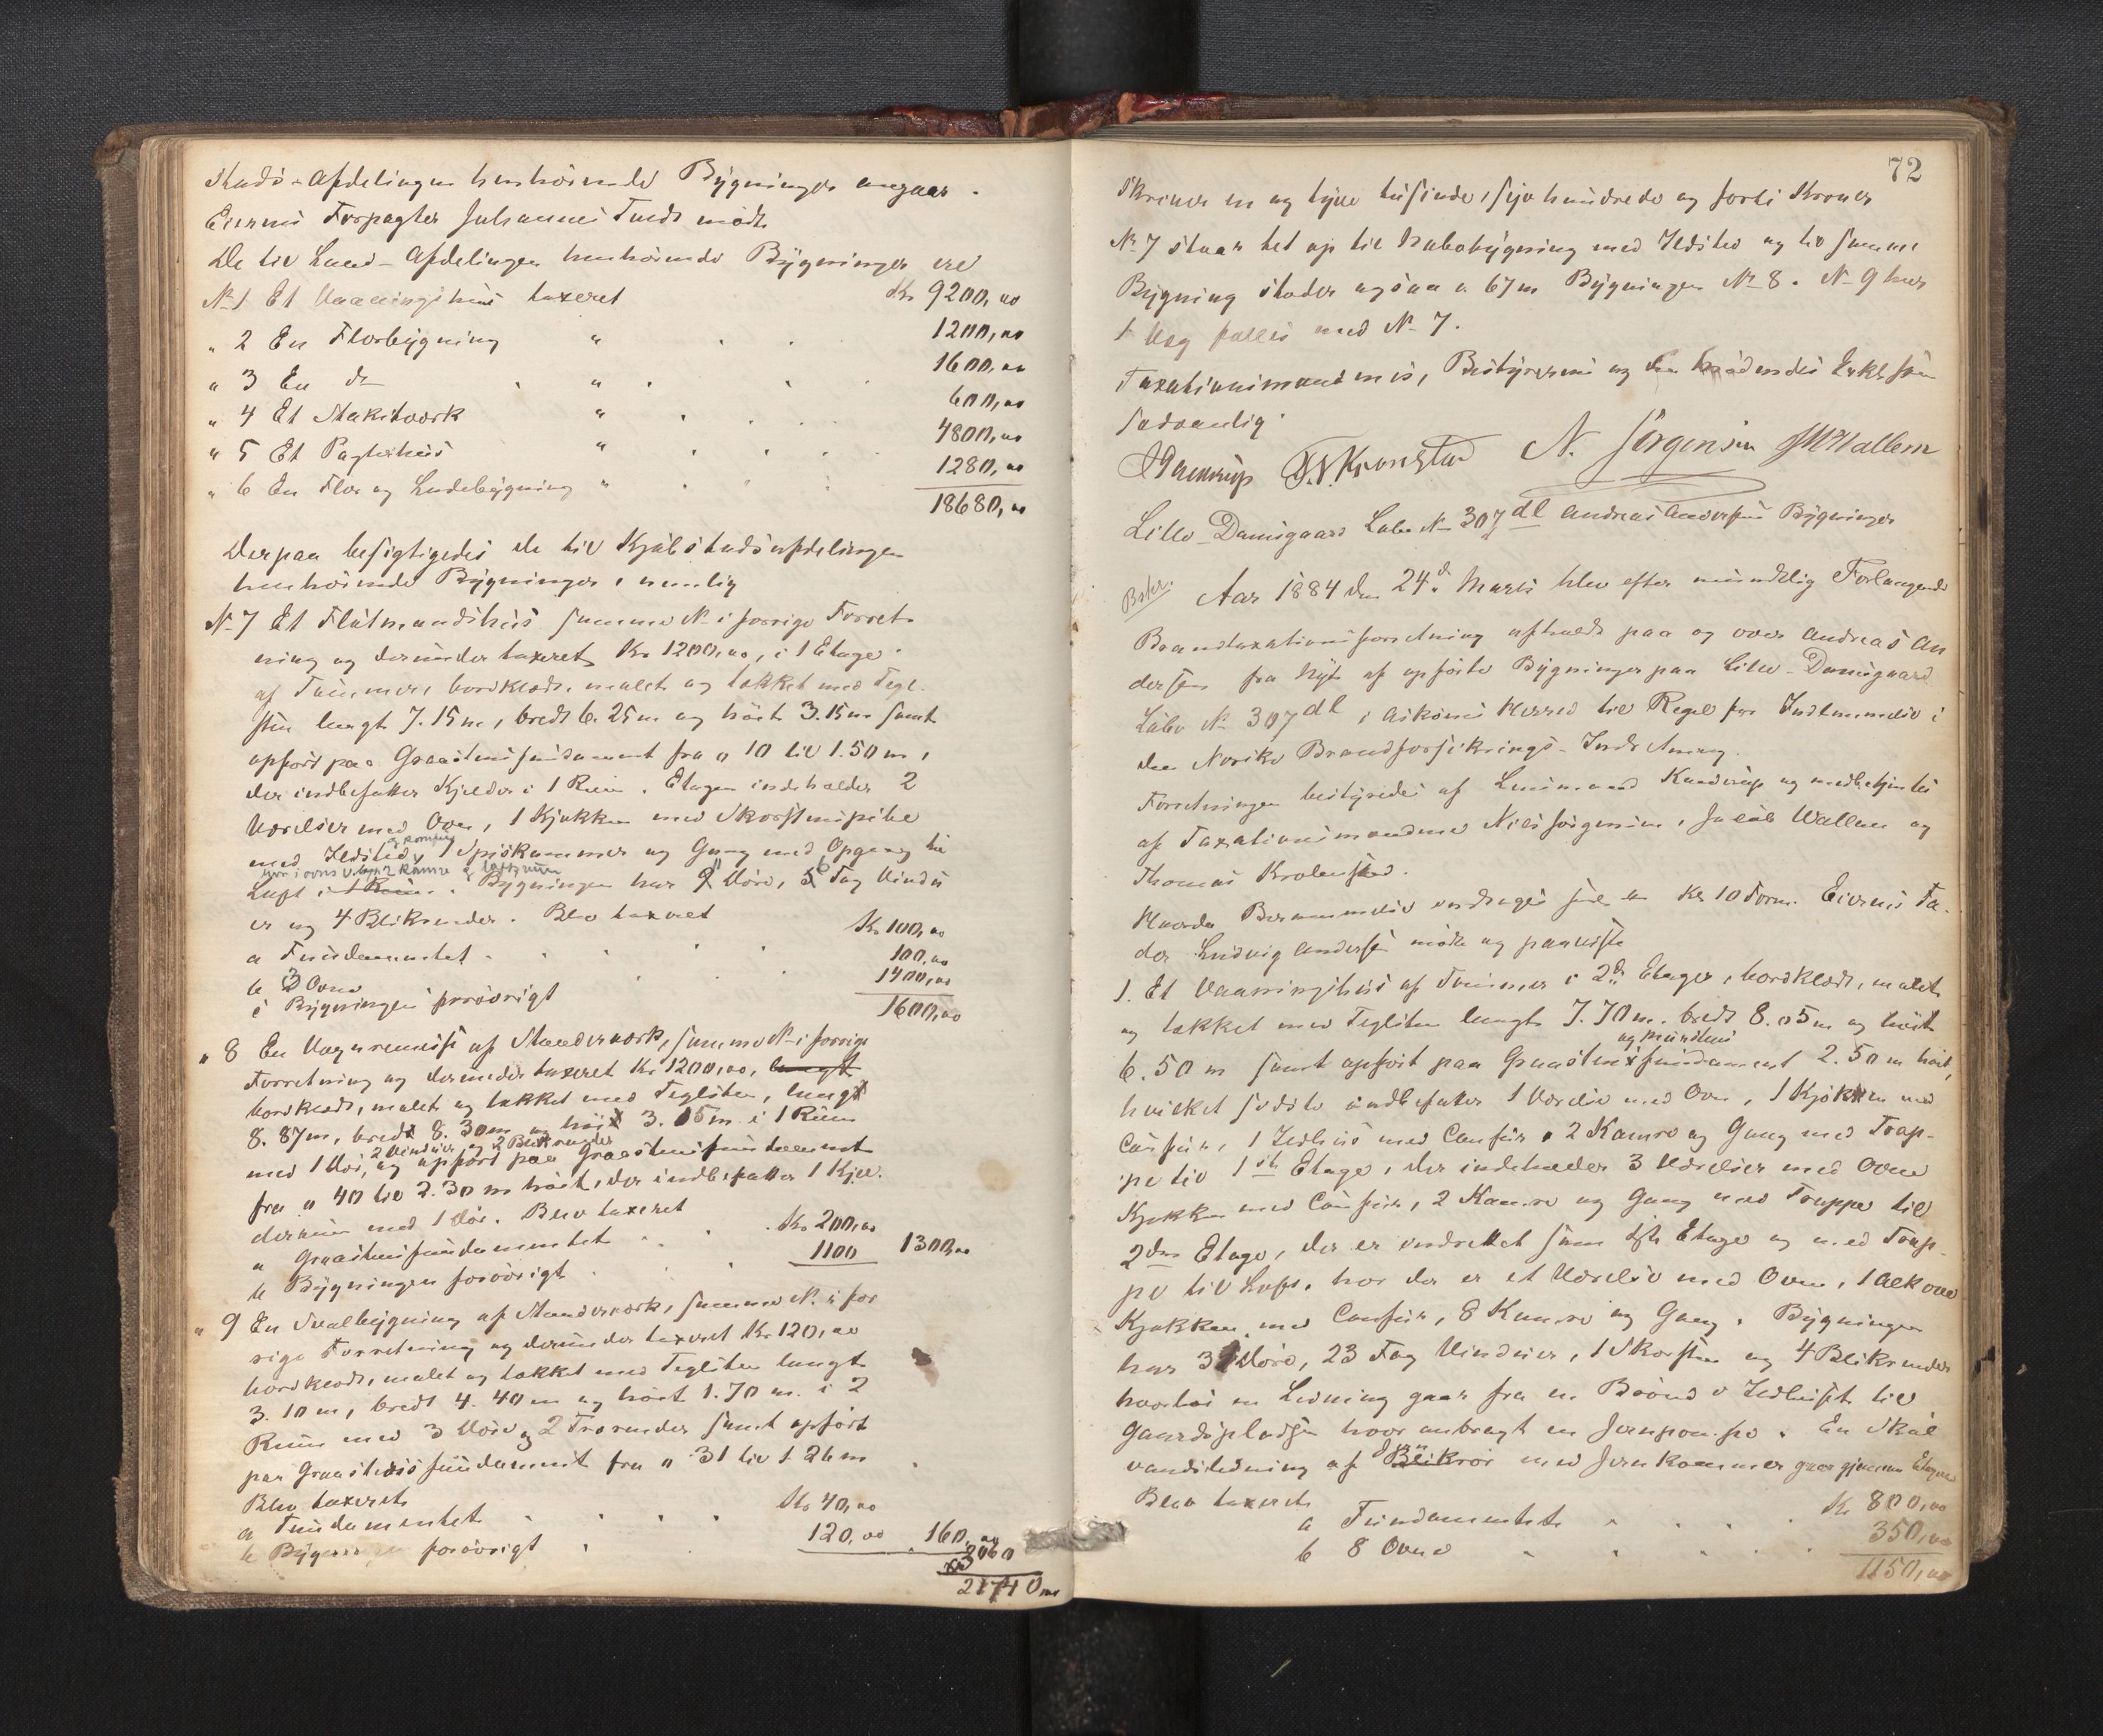 Stads-Afdelingen henhörende Bygninger angaar.
Eierens Forpagter Johannes Tveds mödte
De til Land-Afdelingen henhörende Bygninger ere
No 1 Et Vaaningshus taxeret Kr 9200,00
" 2 En Florbygning " 1200,00
" 3 En do " 1600,00
" 4 Et Stakitværk " 600,00
" 5 Et Pagterhus " 4800,00
" 6 En Flor og Ladebygning " 1280,00
18680,00
Derpaa besigtigedes de til Kjöbstadsafdelingen
henhörende Bygninger, nemlig
No 7 Et Flötmandshus samme No i forrige Forret-
ning og derunder taxeret Kr 1200,00, i 1 Etage
af Tømmer, bordklædt, malet og takket med Tegl-
sten langt 7.15 m, bredt 6.25 m og höit 3.15 m samt
opfört paa Graastensfundament fra 0.10 til 1.50 m,
der indbefatter Kjelder i 1 Rum. Etagen indeholder 2
Værelser med Ovne, 1 Kjøkken med Skorstenspibe
med Ildsted, 1 Spiskammer og Gang med Opgang til
Loft i 1 Rum. Bygningen har 9 Döre, 5 Fag Vindu
er og 4 Blikrender. Blev taxeret
a Fundamentet Kr 100,00
b 3 Ovne 100,00
c Bygningen forövrigt 1400,00
1600,00
" 8 En Vognremise af Stenderværk, samme No i forrige
Forretning og derunder taxeret Kr 1200,00, langt
bordklædt, malet og takket med Teglsten, langt
8.87 m, bredt 8.30 m og höit 3.15 m i 1 Rum
2 Vinduer og 2 Blikrender
med 1 Dör, og opfört paa Graastensfundament
fra 0.40 til 2.30 m höit, der indbefatter 1 Kjel-
derrum med 1 Dör. Blev taxeret
a Graastensfundamentet Kr 200,00
b Bygningen forövrigt 1100 1300,00
" 9 En Svalbygning af Stenderværk, samme No i for
rige Forretning og derunder taxeret Kr 120,00
bordklædt, malet og takket med Teglsten langt
3.10 m, bredt 4.40 m og höit 1.70 m i 2
Rum med 3 Döre og 2 Trærender samt opfört
paa Graastensfundament fra 0.31 til 1.26 m
Blev taxeret
a Fundamentet Kr 40,00
b Bygningen forövrigt 120,00 160,00
3060
21740,00
72
Skriver en og tyve tusinde, syv hundrede og forti Kroner
No 7 staar tæt op til Nabobygning med Ildsted og til samme
Bygning støder ogsaa Bygningen No 8. No 9 har
1 Væg fælles med No 7.
Taxationsmændenes, Bestyrerens og
sædvanlig.
N. Jörgensen JWallem
Lille Damsgaard Löbe No 307 dl Andreas Andersens Bygninger
Aar 1884 den 24de Marts blev efter mundtlig Forlangende
Brandtaxationsforretning afholdt paa og over Andreas An
dersen fra Nyt af opförte Bygninger paa Lille-Damsgaard
Löbe No 307 dl i Askøens Herred til Regel for Indlemmelse i
den Norske Brandforsikrings-Indretning.
Forretningen bestyredes af Lensmand Knudtrup og medbetjentes
af Taxationsmændene Nils Jörgensen, Jakob Wallem og
Thomas Kronstad.
Kr 10 Form. Eierens Fa-
der Ludvig Andersen mödte og paaviste
1. Et Vaaningshus af Tømmer i 2de Etager, bordklædt, malet
og takket med Teglsten langt 7.70 m, bredt 8.05 m og höit
og Murstens
6.50 m samt opfört paa Graastensfundament 2.50 m höit,
hvilket sidste indbefatter 1 Værelse med Ovn, 1 Kjökken med
Comfur, 1 Ildhus med Comfur, 2 Kamre og Gang med Trap-
pe til 1ste Etage, der indeholder 3 Værelser med Ovne
Kjøkken med Comfur, 2 Kamre og Gang med Trappe til
2den Etage, der er indrettet som 1ste Etage og med Trap-
pe til Loft, hvor der er et Værelse med Ovn, 1 Alkove
Kjøkken med Comfur, 8 Kamre og Gang. Bygningen
har 39 Döre, 23 Fag Vinduer, 1 Skorsten og 4 Blikrender
hvorhos en Ledning gaar fra en Brönd i Ildhuset til
Gaardspladsen hvor anbragt en Jernpompe. En Skul
vandsledning af Blikrör med Jernkommer gaar gjennem Etagerne
Blev taxeret
a Fundamentet Kr 800,00
b 8 Ovne 350,00
1150,00